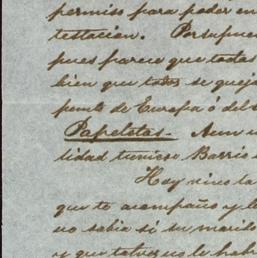 permiso para poder en
testacion. Por supue
pues parece que todas
bien que todos se quej
punto de Europa ó del
Papeletas. Aun
lidad tuviese Barrios
Hoy vino la
que te acompaño y le
no sabia si su marido
y que talvez no le habr